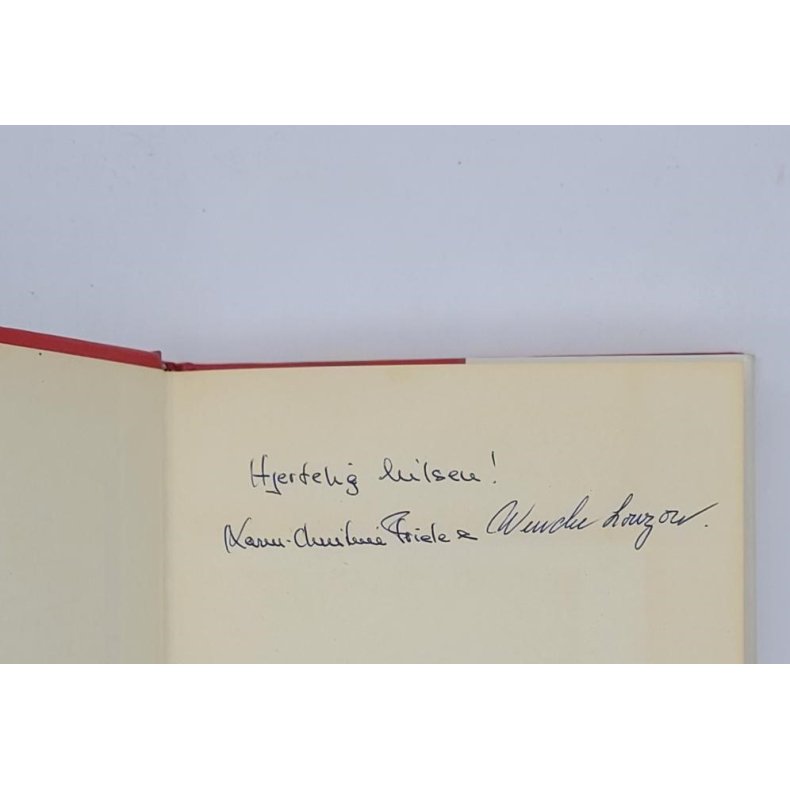 Hjertelig hilsen!
Karen-Christine Friele & Wenche Lowzow.